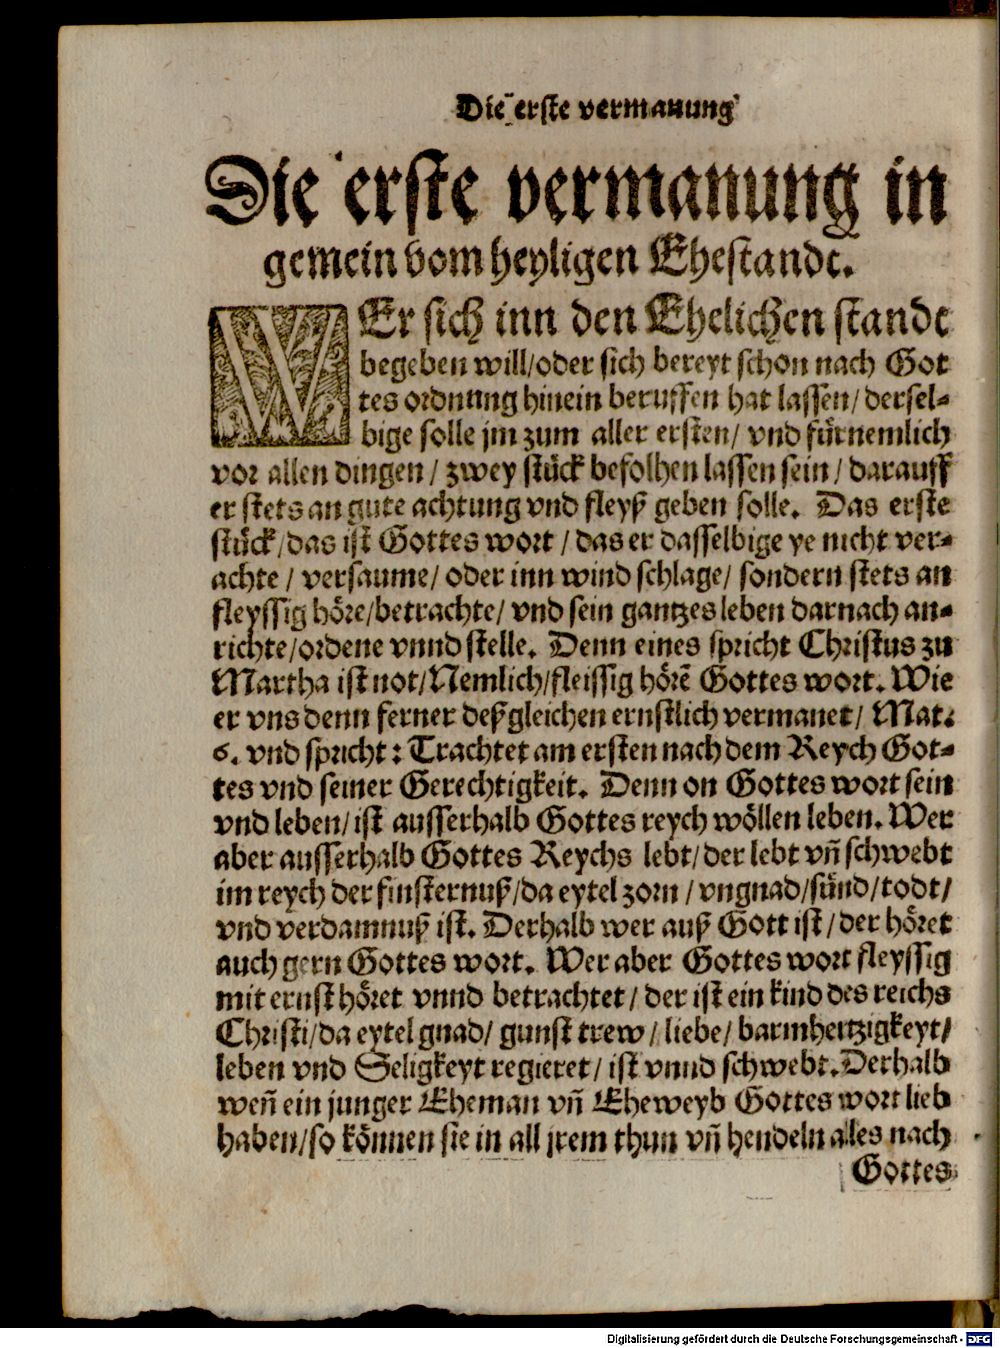 Die erste vermanung
Die erste vermanung in
gemein vom heyligen Ehestande.
WEr sich inn den Ehelichen stande
begeben will/oder sich bereyt schon nach Got
tes ordnung hinein beruffen hat lassen/ dersel-
bige solle jm zum aller ersten/ vnd fürnemlich
vor allen dingen/ zwey stück befolhen lassen sein/ darauff
er stets an gute achtung vnd fleyß geben solle. Das erste
stück/das ist Gottes wort/das er dasselbige ye nicht ver-
achte/ versaume/ oder inn wind schlage/ sondern stets an
fleyssig höre/betrachte/ vnd sein gantzes leben darnach an-
richte/ordene vnnd stelle. Denn eines spricht Christus zu
Martha ist not/Nemlich/fleissig hörē Gottes wort. Wie
er vns denn ferner deßgleichen ernstlich vermanet/ Mat.
6. vnd spricht: Trachtet am ersten nach dem Reych Got-
tes vnd seiner Gerechtigkeit. Denn on Gottes wort sein
vnd leben/ist ausserhalb Gottes reych wöllen leben. Wer
aber ausserhalb Gottes Reychs lebt/der lebt vñ schwebt
im reych der finsternuß/da eytel zorn/ vngnad/sünd/todt/
vnd verdamnuß ist. Derhalb wer auß Gott ist/der höret
auch gern Gottes wort. Wer aber Gottes wort fleyssig
mit ernst höret vnnd betrachtet/ der ist ein kind des reichs
Christi/da eytel gnad/ gunst trew/ liebe/ barmhertzigkeyt/
leben vnd Seligkeyt regieret/ ist vnnd schwebt. Derhalb
weñ ein junger Eheman vñ Eheweyb Gottes wort lieb
haben/so können sie in all jrem thun vñ hendeln alles nach
Gottes
Digitalisierung gefördert durch die Deutsche Forschungsgemeinschaft - DFG